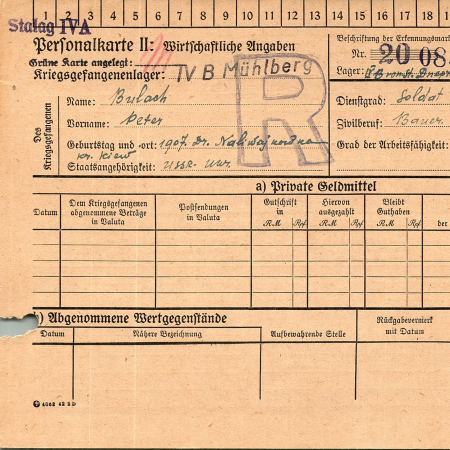 1 2 3 4 5 6 7 8 9 10 11 12 13 14 15 16 17 18
Stalag IVA
Personalkarte II: Wirtschaftliche Angaben
Grüne Karte angelegt:
Kriegsgefangenenlager: IV B Mühlberg
R
Beschriftung der Erkennungsmark
Nr. 2008
Lager:
Des Kriegsgefangenen
Name: Bulach
Vorname: Peter
Geburtstag und -ort: 1907
Kr. Kiew
Staatsangehörigkeit: USSR. Ukr.
Dienstgrad: Soldat
Zivilberuf: Bauer
Grad der Arbeitsfähigkeit:
a) Private Geldmittel
Datum
Dem Kriegsgefangenen abgenommene Beträge in Valuta
Postsendungen in Valuta
Gutschrift in
RM Rpf
Hiervon ausgezahlt
RM Rpf
Bleibt Guthaben
RM Rpf
der
b) Abgenommene Wertgegenstände
Datum
Nähere Bezeichnung
Aufbewahrende Stelle
Rückgabevermerk mit Datum
4062 42 2 D